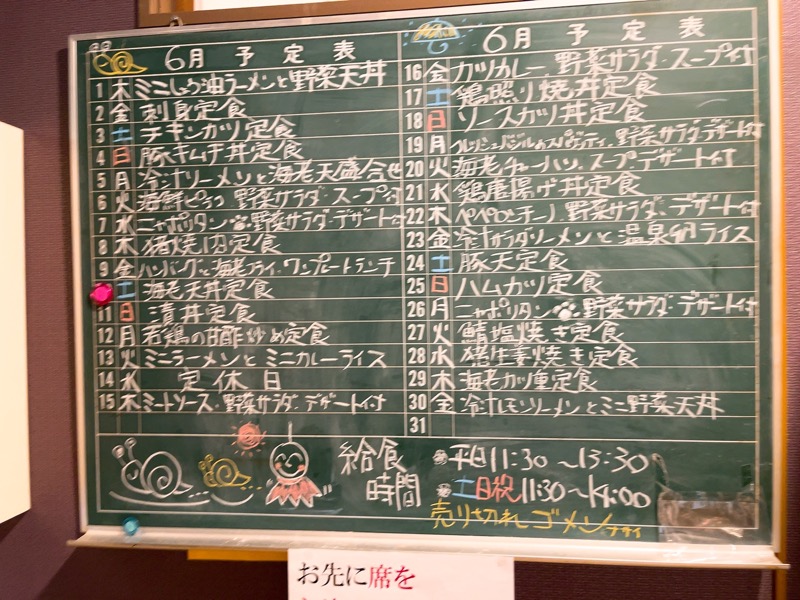 6月 予定表
1 木 ミニしょう油ラーメンと野菜天丼
2 金 刺身定食
3 土 チキンカツ定食
4 日 豚キムチ丼定食
5 月 冷汁ソーメンと海老天盛合せ
6 火 海鮮ピラフ 野菜サラダ・スープ付
7 水 ニャポリタン 野菜サラダ・デザート付
8 木 猪焼肉定食
9 金 ハンバーグと海老フライ・ワンプレートランチ
土 海老天丼定食
11 日 漬丼定食
12 月 若鶏の甘酢炒め定食
13 火 ミニラーメンとミニカレーライス
14 水 定休日
15 木 ミートソース・野菜サラダ・デザート付
6月 予定表
16 金 カツカレー、野菜サラダ・スープ付
17 土 鶏照り焼丼定食
18 日 ソースカツ丼定食
19 月 フレッシュバジルのスパゲティ、野菜サラダ・デザート付
20 火 海老チャーハン、スープデザート付
21 水 鶏唐揚げ丼定食
22 木 ペペロンチーノ、野菜サラダ、デザート付
23 金 冷汁サラダソーメンと温泉卵ライス
24 土 豚天定食
25 日 ハムカツ定食
26 月 ニャポリタン 野菜サラダ・デザート付
27 火 鯖塩焼き定食
28 水 猪生姜焼き定食
29 木 海老カツ重定食
30 金 冷汁レモンソーメンとミニ野菜天丼
31
給食時間
平日11:30～13:30
土日祝11:30～14:00
売り切れゴメンナサイ
お先に席を